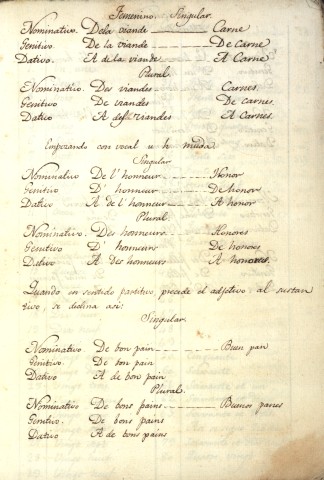 Femenino Singular.
Nominativo. De la viande Carne
Genitivo De la viande De Carne
Dativo. A de la viande A Carne
Plural.
Nominativo. Des viandes Carnes.
Genitivo De viandes De carnes.
Dativo A des viandes A Carnes.
Empezando con vocal u h muda
Singular
Nominativo De l'honneur Honor
Genitivo D'honneur De honor
Dativo A de l'honneur A honor
Plural.
Nominativo. Des honneurs Honores
Genitivo D'honneurs De honores
Dativo A des honneurs A honores.
Quando en sentido partitivo, precede el adjetivo al sustan
tivo, se declina asi:
Singular.
Nominativo De bon pain Buen pan
Genitivo De bon pain
Dativo A de bon pain
Plural.
Nominativo De bons pains Buenos panes
Genitivo. De bons pains
Dativo A de bons pains